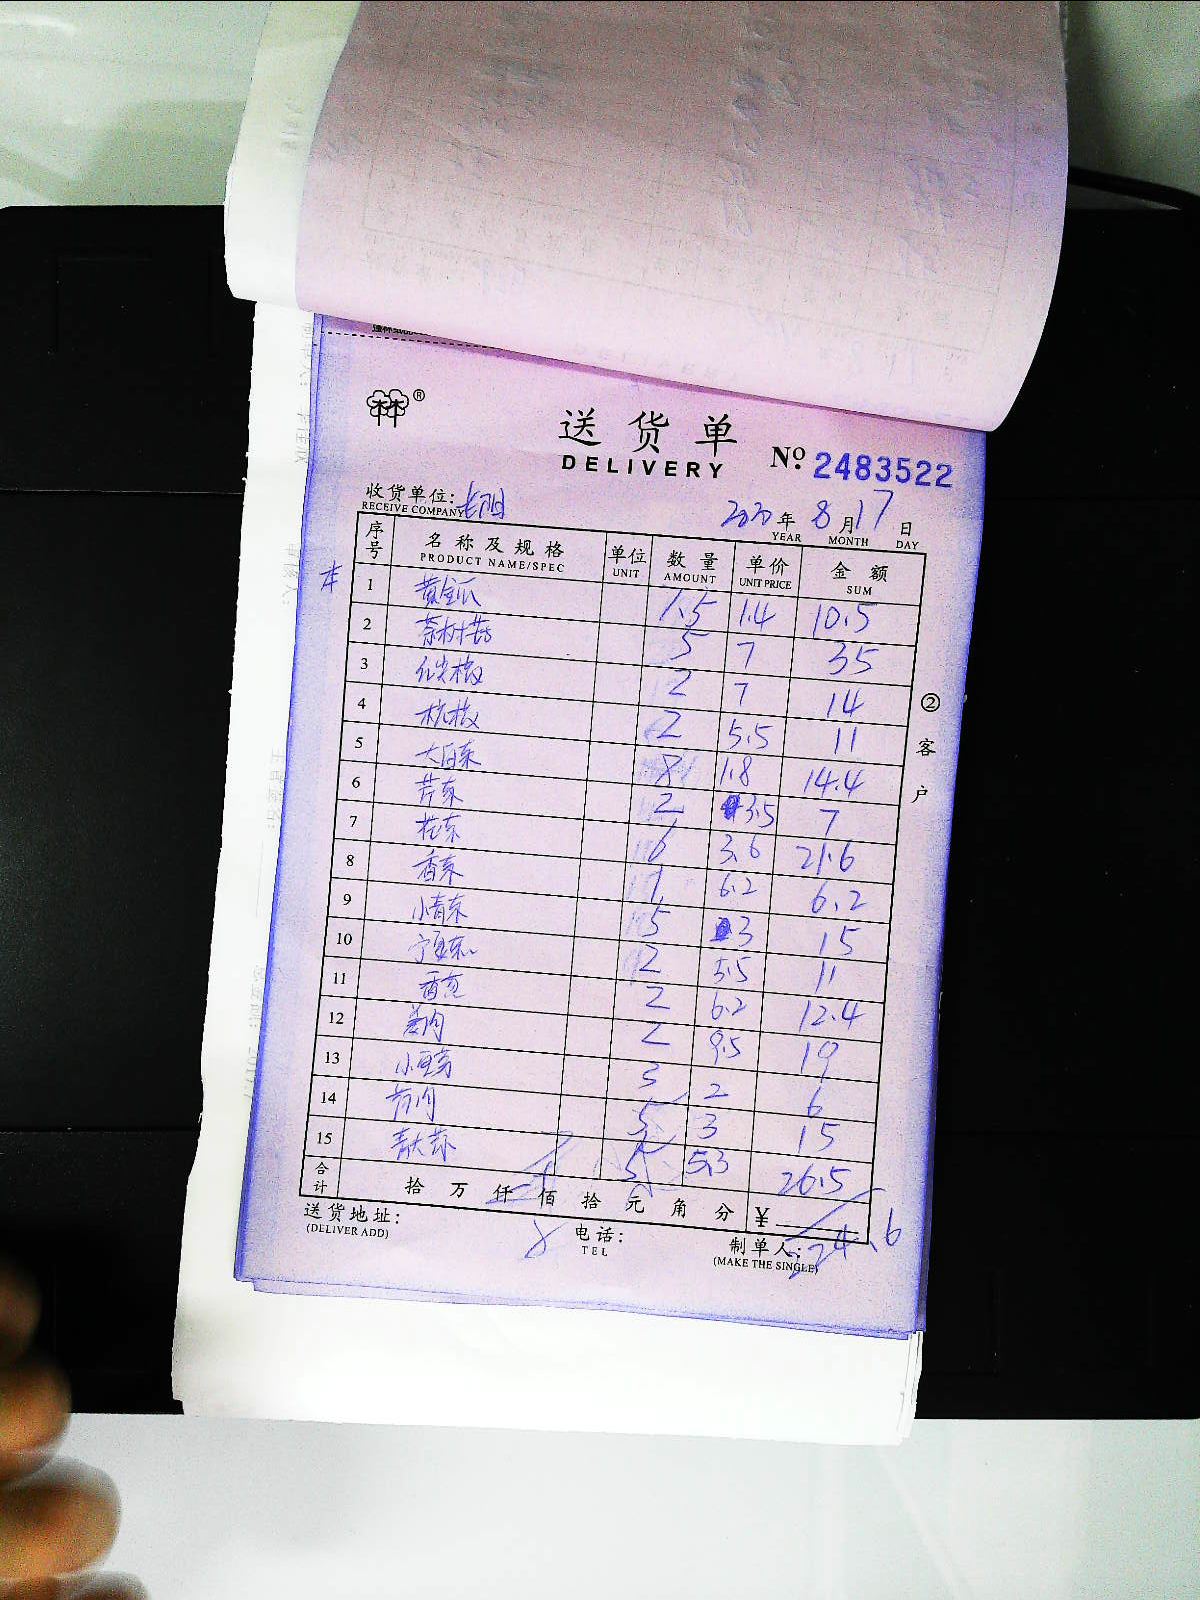 送货单
DELIVERY
№ 2483522
收货单位：
RECEIVE COMPANY
2020 年 8 月 17 日
YEAR MONTH DAY
序号 名称及规格 单位 数量 单价 金额
PRODUCT NAME/SPEC UNIT AMOUNT UNIT PRICE SUM
1 黄金瓜 1.4 10.5
2 茶树菇 5 7 35
3 红尖椒 2 7 14
4 杭椒 2 5.5 11
5 大白菜 8 1.8 14.4
6 芹菜 2 3.5 7
7 花菜 6 3.6 21.6
8 香菜 1 6.2 6.2
9 小青菜 5 3 15
10 2 5.5 11
11 香葱 2 6.2 12.4
12 姜肉 2 9.5 19
13 小豆芽 3 2 6
14 5 3 15
15 5 5.3 26.5
合计 拾 万 仟 佰 拾 元 角 分 ¥
224.6
送货地址：
(DELIVER ADD)
电话：
TEL
制单人：
(MAKE THE SINGLE)
②客户